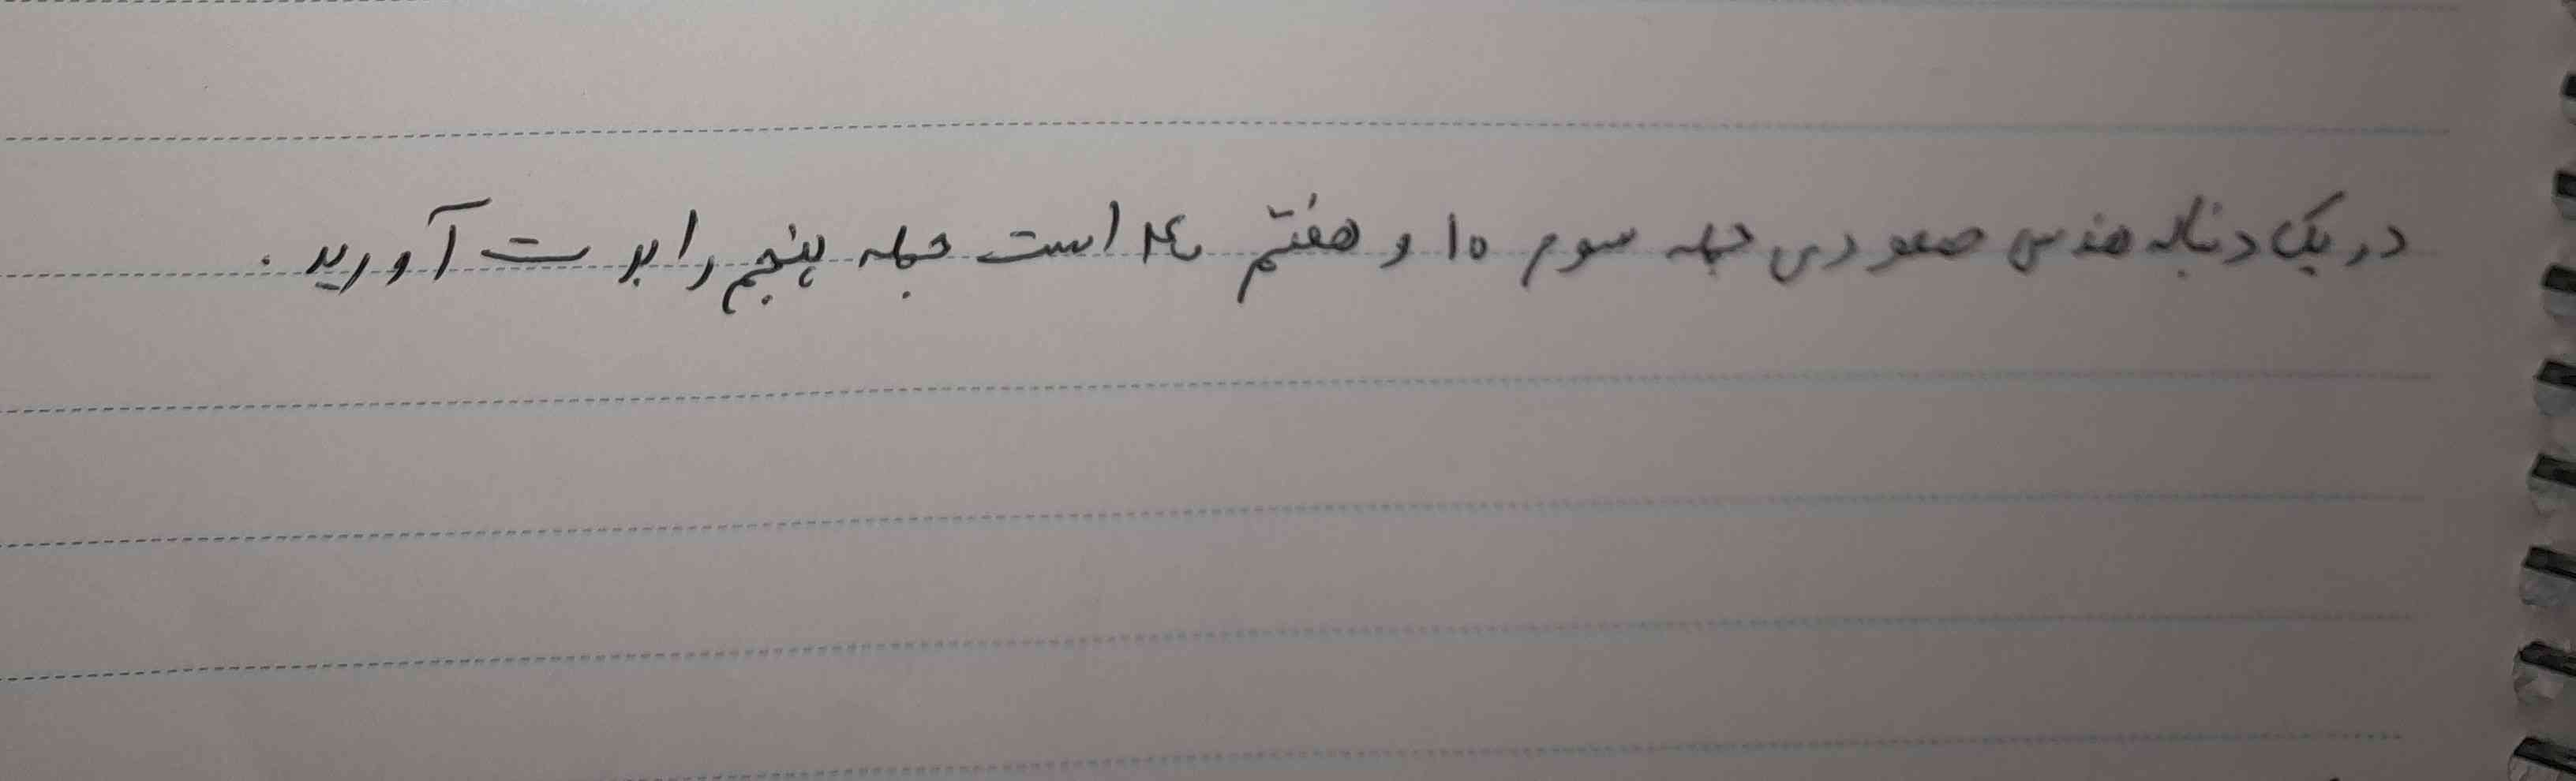 در یک دنباله هندسی صعودی جمله سوم ۱۵ و هفتم ۲۴۰ است جمله پنجم را بدست آورید .